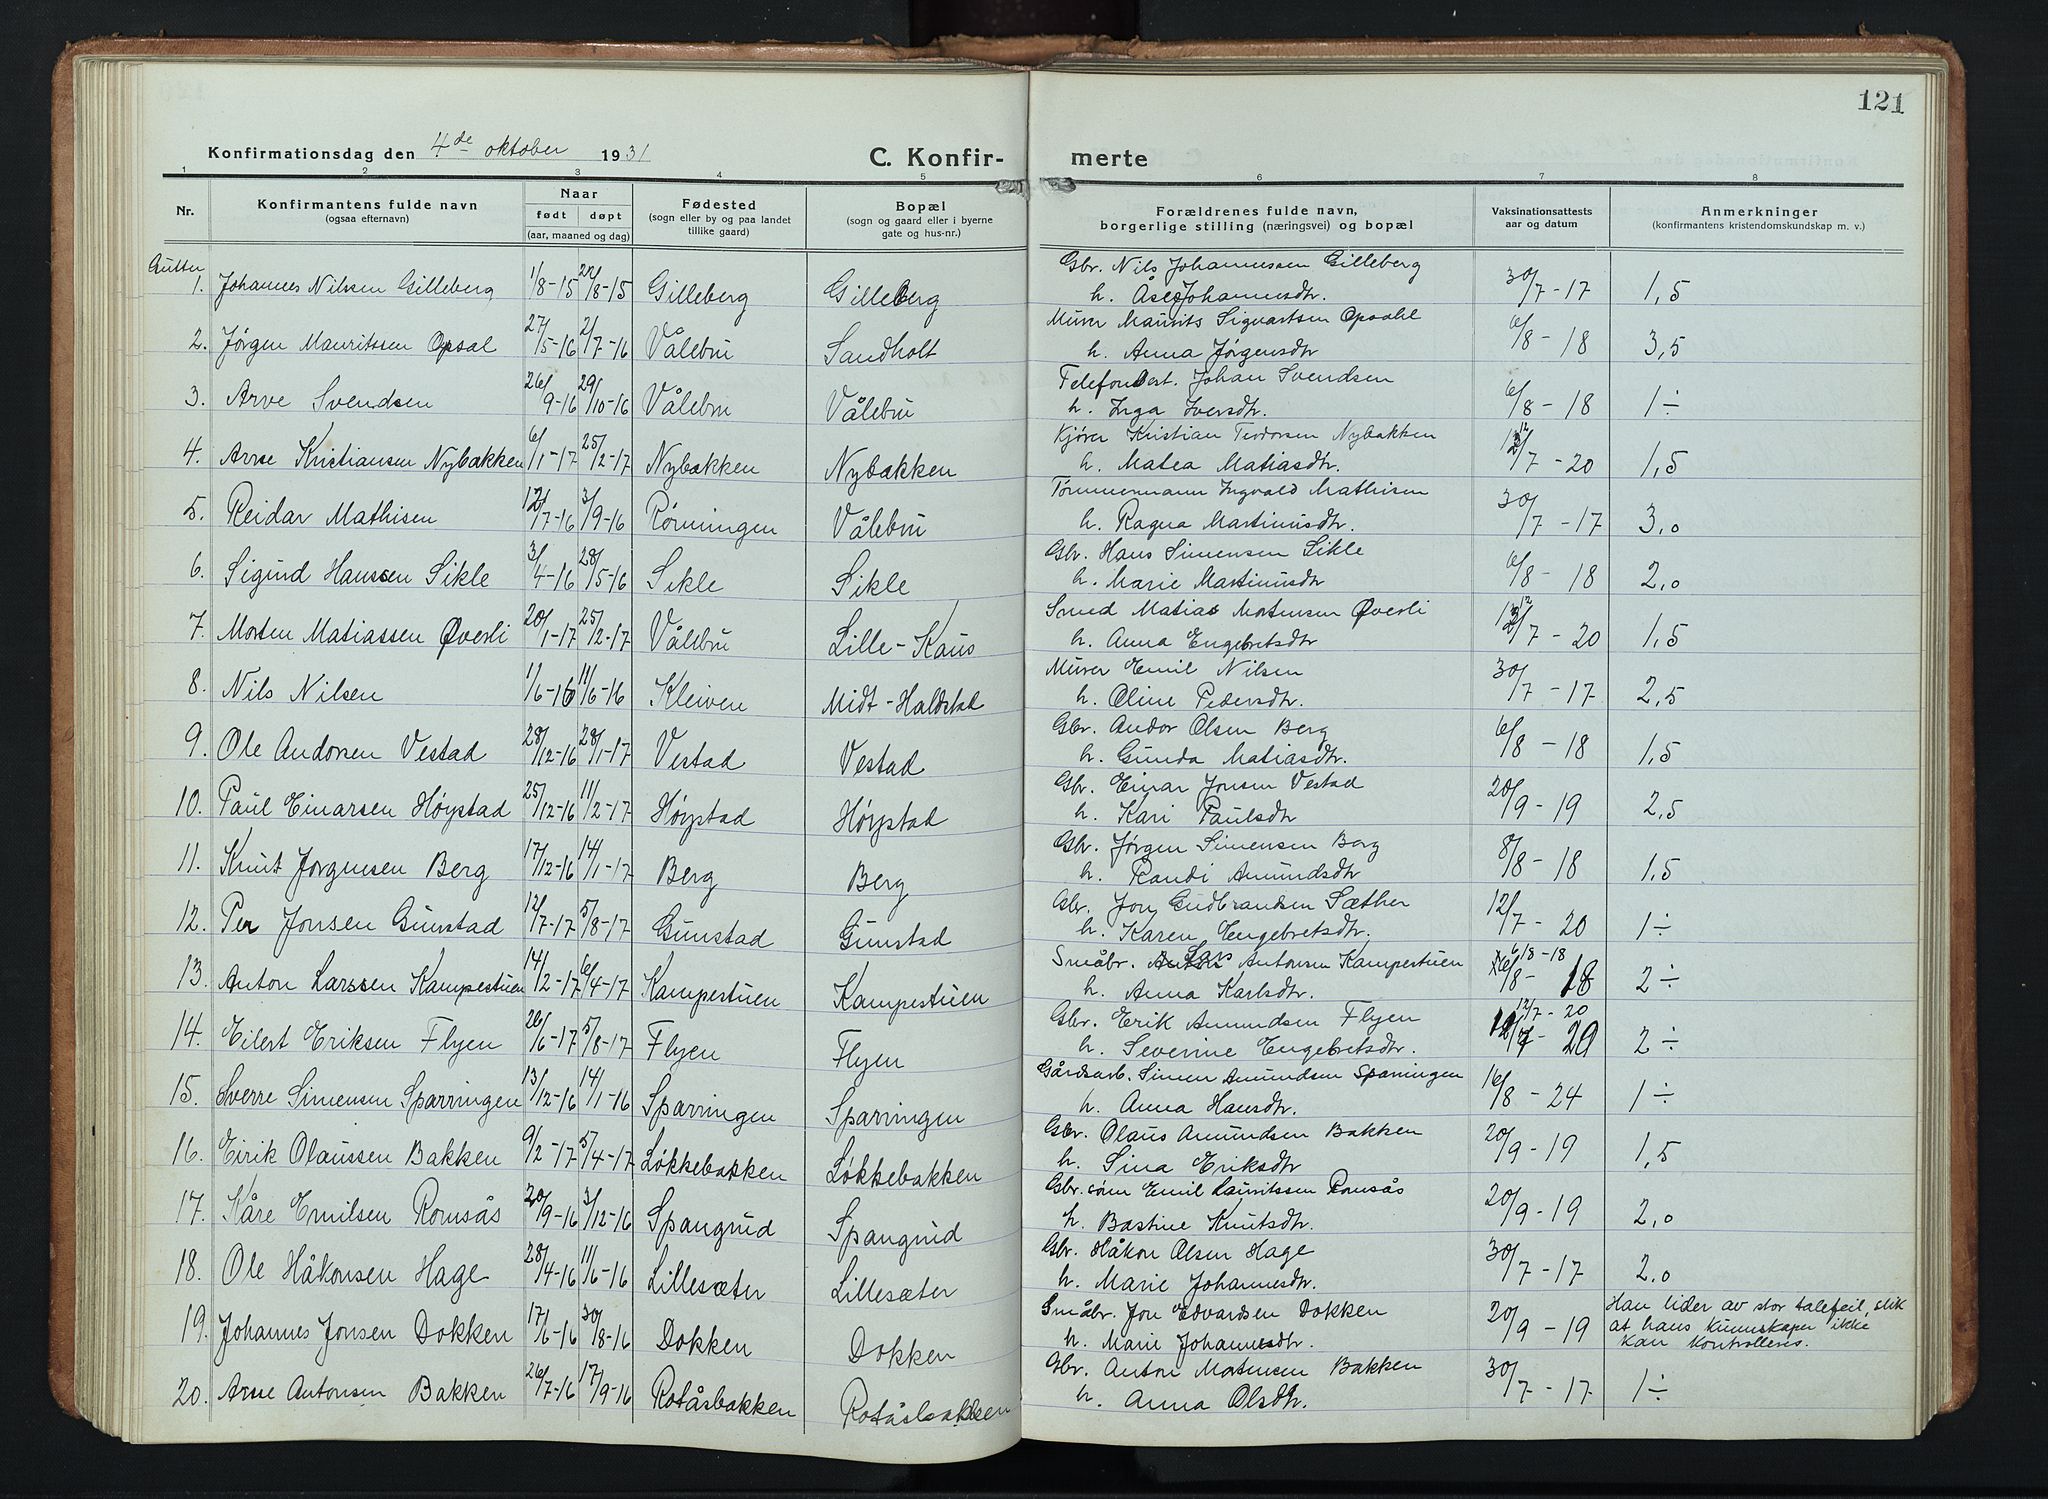 121
Konfirmationsdag den 4de oktober 1931 C. Konfir- merte
1 2 3 4 5 6 7 8
Nr. Konfirmantens fulde navn (ogsaa efternavn) Naar født døpt (aar, maaned og dag) Fødested (sogn eller by og paa landet tillike gaard) Bopæl (sogn og gaard eller i byerne gate og hus-nr.) Forældrenes fulde navn, borgerlige stilling (næringsvei) og bopæl Vaksinationsattests aar og datum Anmerkninger (konfirmantens kristendomskundskap m. v.)
Gutter
1. Johannes Nilsen Gilleberg 1/8-15 /8-15 Gilleberg Gilleberg Gbr. Nils Johannessen Gilleberg 30/7-17 1,5
h. Åse Johannesdtr.
2. Jørgen Mauritssen Opsal 27/5-16 2/7-16 Vålebru Sandholt Murer Maurits Sigvartsen Opsahl 6/8-18 3,5
h. Anna Jørgensdtr
3. Arve Svendsen 26/9-16 29/10-16 Vålebru Vålebru Telefonbest. Johan Svendsen 6/8-18 1÷
h. Inga Iversdtr.
4. Arne Kristiansen Nybakken 6/1-17 25/2-17 Nybakken Nybakken Kjører Kristian Teodorsen Nybakken 12/7-20 1,5
h. Matea Matiasdtr.
5. Reidar Mathisen 12/7-16 3/9-16 Rønningen Vålebru Tømmermann Ingvald Mathisen 30/7-17 3,0
h. Ragna Martinusdtr.
6. Sigurd Hanssen Sikle 3/4-16 28/5-16 Sikle Sikle Gbr. Hans Simensen Sikle 6/8-18 2,0
h. Marie Martinusdtr
7. Morten Matiassen Øverli 20/1-17 25/2-17 Vålebru Lille-Kaus Smed Matias Mortensen Øverli 12/7-20 1,5
h. Anna Engebretsdtr
8. Nils Nilsen 1/6-16 11/6-16 Kleiven Midt-Haldstad Murer Emil Nilsen 30/7-17 2,5
h. Oline Pedersdtr.
9. Ole Andorsen Vestad 28/12-16 28/1-17 Vestad Vestad Gbr. Andor Olsen Berg 6/8-18 1,5
h. Gunda Matiasdtr.
10. Paul Einarsen Høystad 25/12-16 11/2-17 Høystad Høystad Gbr. Einar Jonsen Vestad 20/9-19 2,5
h. Kari Paulsdtr
11. Knut Jørgensen Berg 17/12-16 14/1-17 Berg Berg Gbr. Jørgen Simensen Berg 8/8-18 1,5
h. Randi Amundsdtr
12. Per Jonsen Gunstad 12/7-17 5/8-17 Gunstad Gunstad Gbr. Jon Gudbrandsen Sæther 12/7-20 1÷
h. Karen Engebretsdtr.
13. Anton Larssen Kampestuen 14/2-17 6/4-17 Kampestuen Kampestuen Småbr. Lars Antonsen Kampestuen 6/8-18 6/8-18 2÷
h. Anna Karlsdtr.
14. Eilert Eriksen Flyen 26/6-17 5/8-17 Flyen Flyen Gbr. Erik Amundsen Flyen 12/7-20 12/7-20 2÷
h. Severine Engebretsdtr.
15. Sverre Simensen Sparringen 13/12-16 14/1-16 Sparringen Sparringen Gårdsarb. Simen Amundsen Sparringen 16/8-24 1÷
h. Anna Hansdtr.
16. Eirik Olaussen Bakken 9/2-17 5/4-17 Løkkebakken Løkkebakken Gbr. Olaus Amundsen Bakken 20/9-19 1,5
h. Sina Eriksdtr
17. Kåre Emilsen Romsås 20/9-16 3/12-16 Spangrud Spangrud Gbr. søm Emil Lauritssen Romsås 20/9-19 2,0
h. Bastine Knutsdtr.
18. Ole Håkonsen Hage 28/4-16 11/6-16 Lillesæter Lillesæter Gbr. Håkon Olsen Hage 30/7-17 2,0
h. Marie Johannesdtr.
19. Johannes Jonsen Dokken 17/6-16 30/8-16 Dokken Dokken Småbr. Jon Edvardsen Dokken 20/9-19 Han lider av stor talefeil, slik
h. Marie Johannesdtr. at hans kunnskaper ikke
kan kontrolleres.
20. Arne Antonsen Bakken 26/7-16 17/9-16 Rotåsbakken Rotåsbakken Gbr. Anton Mortensen Bakken 30/7-17 1÷
h. Anna Olsdtr.